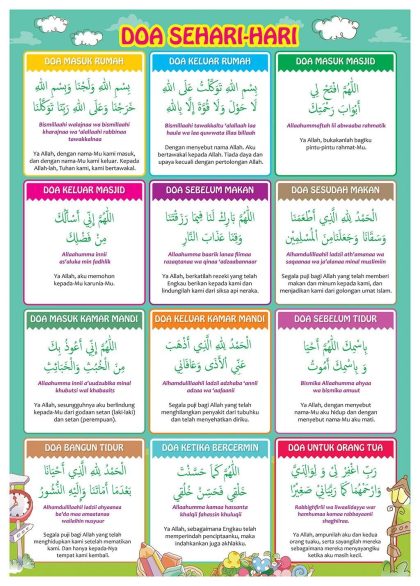 DOA SEHARI-HARI
DOA MASUK RUMAH
بِسْمِ اللهِ وَلَجْنَا وَبِسْمِ اللهِ
خَرَجْنَا وَعَلَى اللهِ رَبِّنَا تَوَكَّلْنَا
Bismillaahi walajnaa wa bismillaahi
kharajnaa wa 'alallaahi rabbinaa
tawakkalnaa
Ya Allah, dengan nama-Mu kami masuk,
dan dengan nama-Mu kami keluar. Kepada
Allah-lah, Tuhan kami, kami bertawakkal.
DOA KELUAR RUMAH
بِسْمِ اللهِ تَوَكَّلْتُ عَلَى اللهِ
لَا حَوْلَ وَلَا قُوَّةَ إِلَّا بِاللهِ
Bismillaahi tawakkaltu 'alallaah laa
haula wa laa quwwata illaa billaah
Dengan menyebut nama Allah. Aku
bertawakal kepada Allah. Tiada daya dan
upaya kecuali dengan pertolongan Allah.
DOA MASUK MASJID
اللّٰهُمَّ افْتَحْ لِي
أَبْوَابَ رَحْمَتِكَ
Allaahummaftah lii abwaaba rahmatik
Ya Allah, bukakanlah bagiku
pintu-pintu rahmat-Mu.
DOA KELUAR MASJID
اللّٰهُمَّ إِنِّي أَسْأَلُكَ
مِنْ فَضْلِكَ
Allaahumma innii
as'aluka min fadhlik
Ya Allah, aku memohon
kepada-Mu karunia-Mu.
DOA SEBELUM MAKAN
اللّٰهُمَّ بَارِكْ لَنَا فِيمَا رَزَقْتَنَا
وَقِنَا عَذَابَ النَّارِ
Allaahumma baarik lanaa fiimaa
razaqtanaa wa qinaa 'adzaabannaar
Ya Allah, berkatilah rezeki yang telah
Engkau berikan kepada kami dan
lindungilah kami dari siksa api neraka.
DOA SESUDAH MAKAN
الْحَمْدُ لِلهِ الَّذِي أَطْعَمَنَا
وَسَقَانَا وَجَعَلَنَا مِنَ الْمُسْلِمِيْنَ
Alhamdulillaahil ladzii ath'amanaa wa
saqaanaa wa ja'alanaa minal muslimiin
Segala puji bagi Allah yang telah memberi
makan dan minum kepada kami, dan
menjadikan kami dari golongan umat islam.
DOA MASUK KAMAR MANDI
اللّٰهُمَّ إِنِّي أَعُوْذُ بِكَ
مِنَ الْخُبُثِ وَالْخَبَائِثِ
Allaahumma innii a'uudzubika minal
khubutsi wal khabaaits
Ya Allah, sesungguhnya aku berlindung
kepada-Mu dari godaan setan (laki-laki)
dan setan (perempuan).
DOA KELUAR KAMAR MANDI
الْحَمْدُ لِلهِ الَّذِي أَذْهَبَ
عَنِّي الْأَذَى وَعَافَانِي
Alhamdulillaahil ladzii adzhaba 'annii
adzaa wa 'aafaanii
Segala puji bagi Allah yang telah
menghilangkan penyakit dari tubuhku
dan telah menyehatkan diriku.
DOA SEBELUM TIDUR
بِاسْمِكَ اللّٰهُمَّ أَحْيَا
وَ بِاسْمِكَ أَمُوْتُ
Bismika Allaahumma ahyaa
wa bismika amuut
Ya Allah, dengan menyebut
nama-Mu aku hidup dan dengan
menyebut nama-Mu aku mati.
DOA BANGUN TIDUR
الْحَمْدُ لِلهِ الَّذِي أَحْيَانَا
بَعْدَمَا أَمَاتَنَا وَإِلَيْهِ النُّشُوْرُ
Alhamdulillaahil ladzii ahyaanaa
ba'da maa amaatanaa
wailaihin nusyuur
Segala puji bagi Allah yang telah
menghidupkan kami setelah mematikan
kami. Dan hanya kepada-Nya
tempat kami kembali.
DOA KETIKA BERCERMIN
اللّٰهُمَّ كَمَا حَسَّنْتَ
خَلْقِي فَحَسِّنْ خُلُقِي
Allaahumma kamaa hassanta
khalqii fahassin khuluqii
Ya Allah, sebagaimana Engkau telah
memperindah penciptaanku, maka
indahkankan juga akhlakku.
DOA UNTUK ORANG TUA
رَبِّ اغْفِرْ لِي وَ لِوَالِدَيَّ
وَارْحَمْهُمَا كَمَا رَبَّيَانِي صَغِيْرًا
Rabbighfirlii wa liwaalidayya war
hamhumaa kamaa rabbayaanii
shaghiiraa.
Ya Allah, ampunilah aku dan kedua
orang tuaku, serta sayangilah mereka
sebagaimana mereka menyayangiku
ketika aku masih kecil.